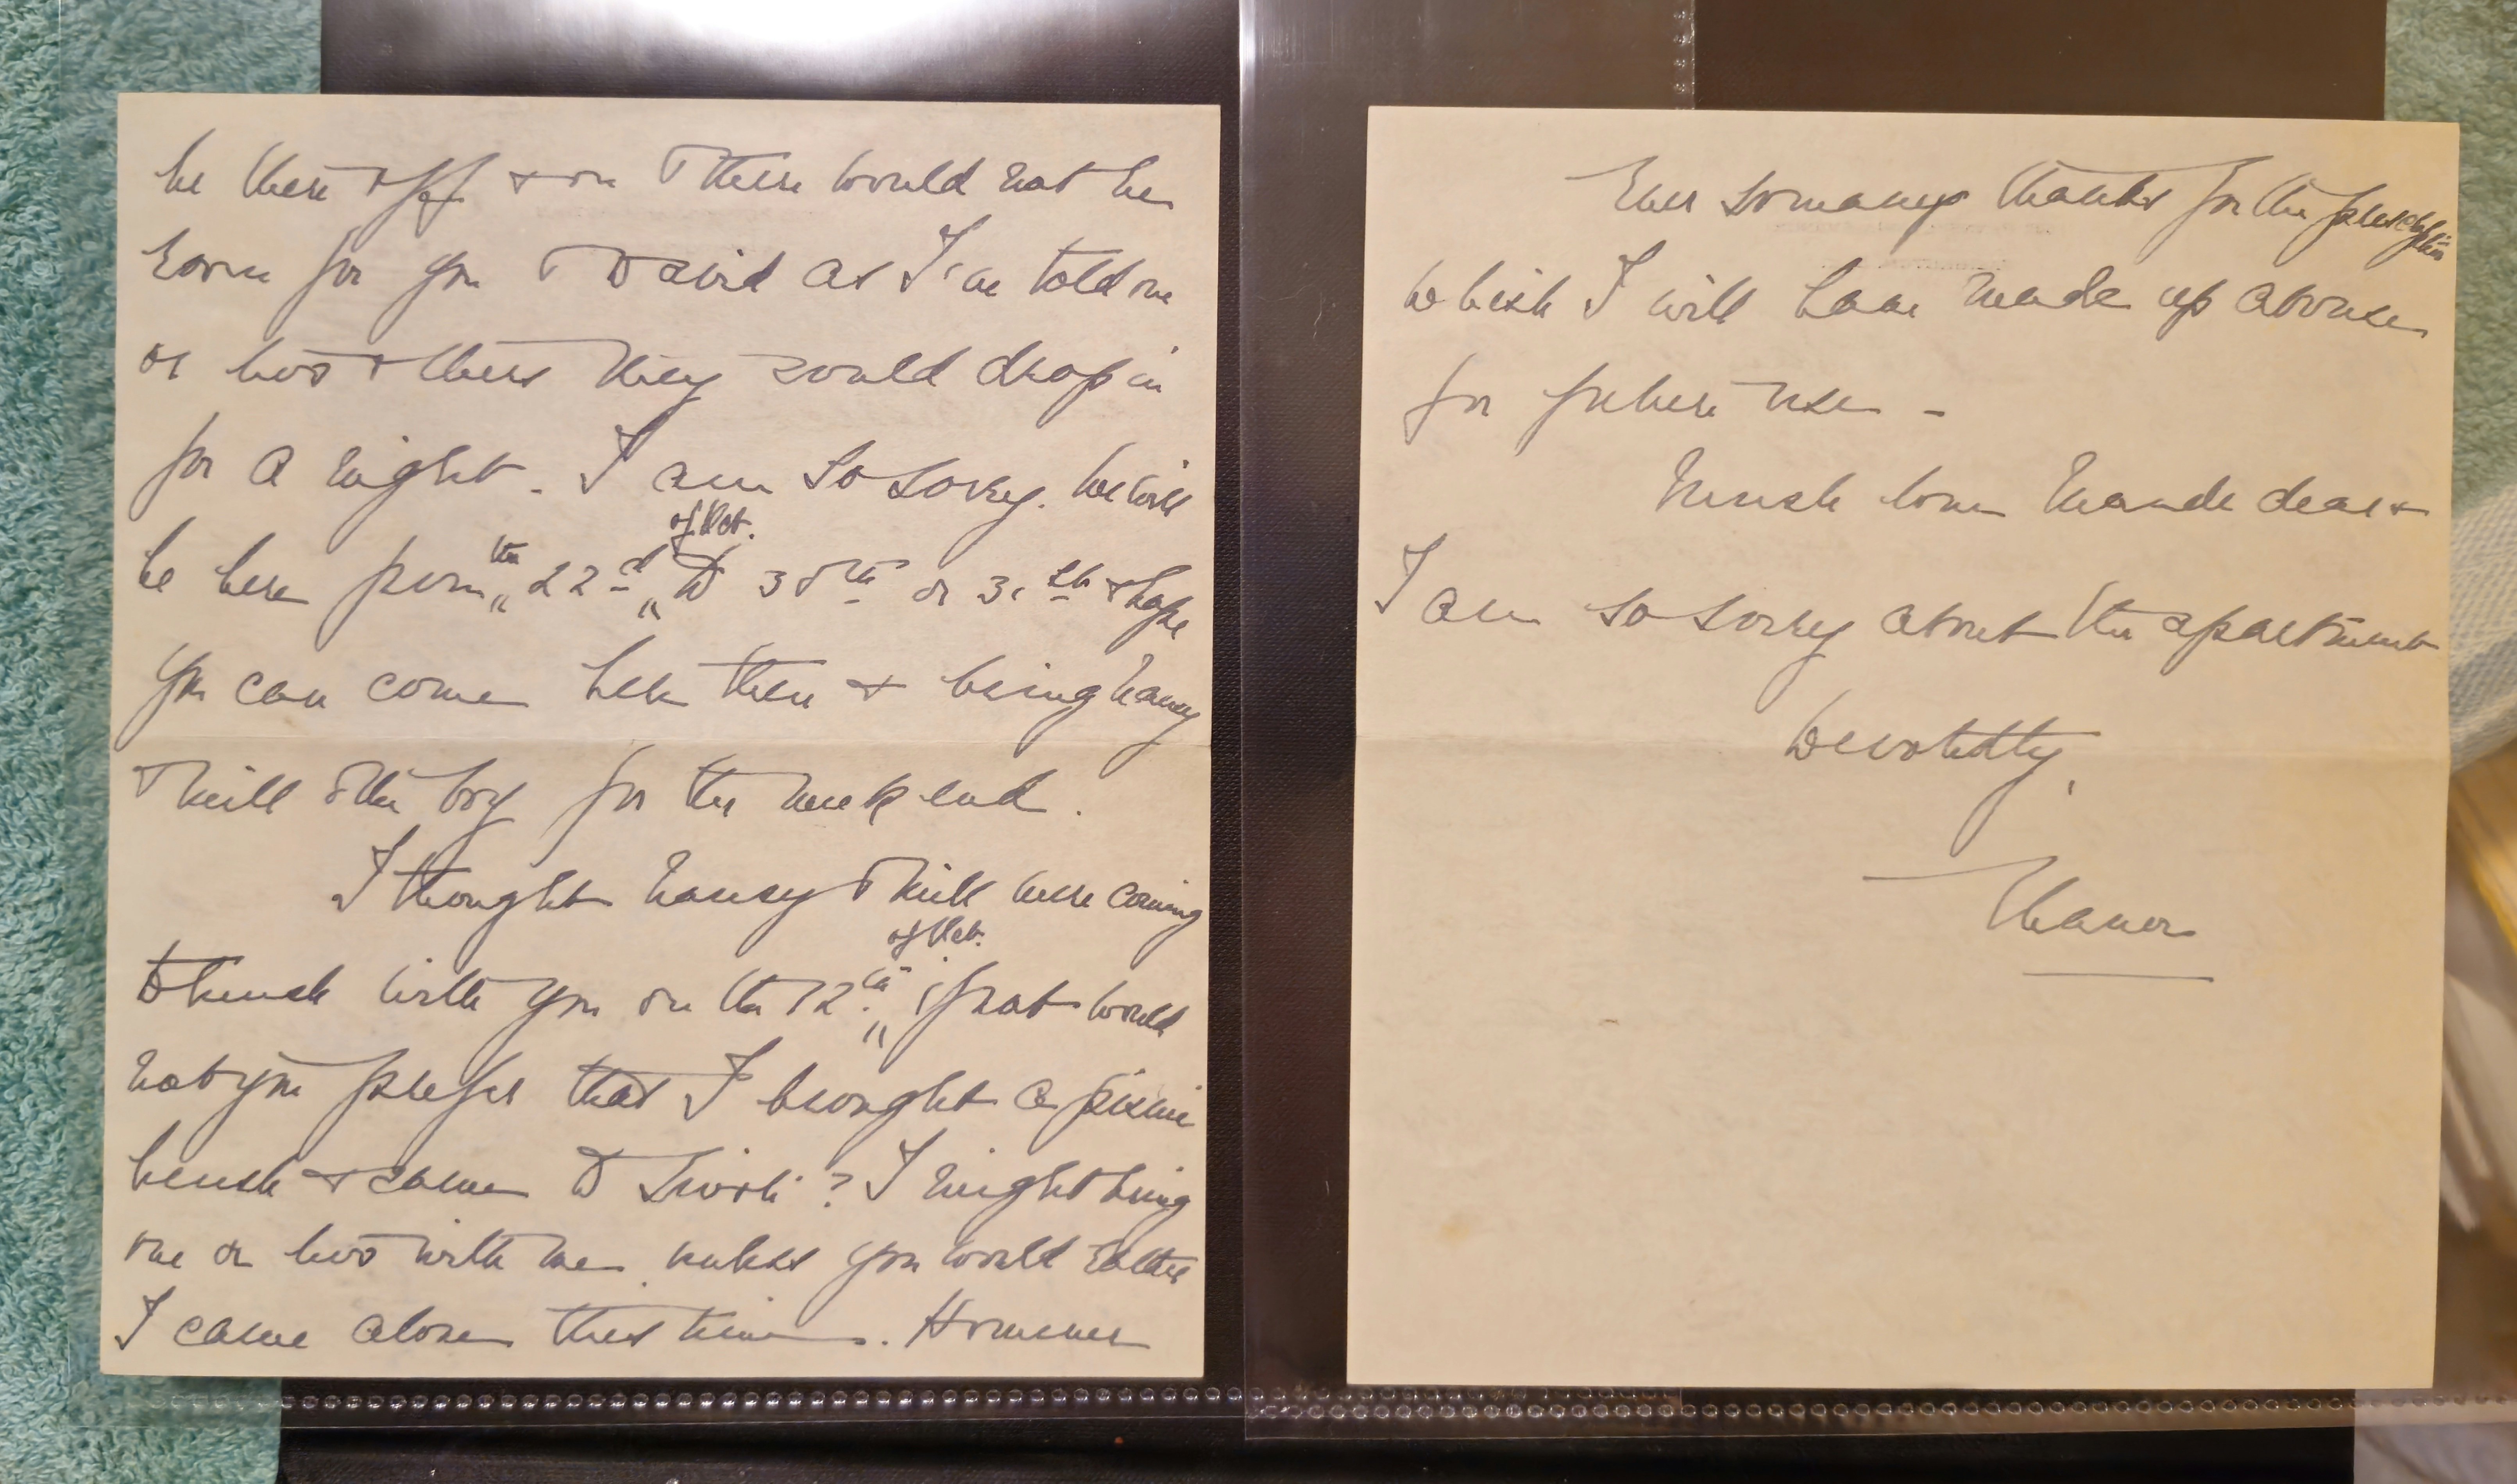 be there off & on & there would not be
room for you & David as I've told one
or two others they could drop in
for a night. I am so sorry. We will
be here from the 22d of Oct. to 30th or 31st & hope
you can come here then & bring Nancy
& Bill & the boy for the week end.
I thought Nancy & Bill were coming
to lunch with you on the 12th of Oct. if not would
not you prefer that I brought a picnic
lunch & came to Tivoli? I might bring
one or two with me unless you would rather
I came alone this time. However
Ever so many thanks for the prescription
which I will have made up at once
for future use -
Much love Maude dear &
I am so sorry about the apartment
Devotedly,
Eleanor